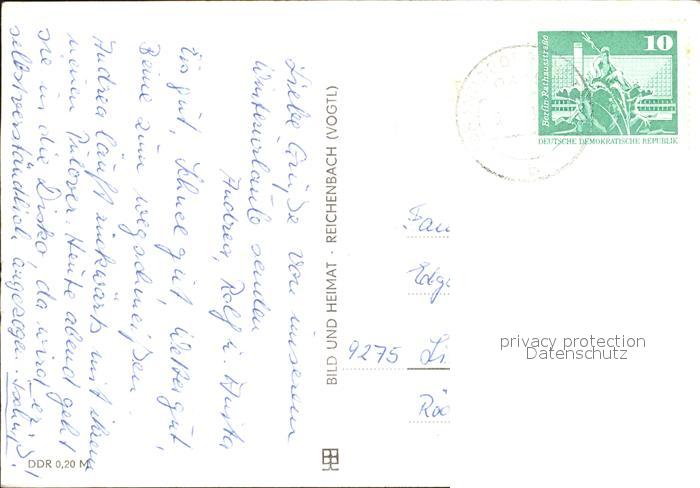 Liebe Grüße von unserem
Winterurlaub senden
Andrea, Rolf u.
Eis gut, Schnee gut, Wetter gut,
Beine zum wegschmeißen.
Andrea läuft rückwärts mit ihrem
neuen Pulover. Heute abend geht
sie in die Disko, da wird er
selbstverständlich angezogen. Tschüß!
DDR 0,20 M
BILD UND HEIMAT · REICHENBACH (VOGTL)
10
Berlin-Rathausstraße
DEUTSCHE DEMOKRATISCHE REPUBLIK
Fam
Edg
9275 Li
privacy protection
Datenschutz